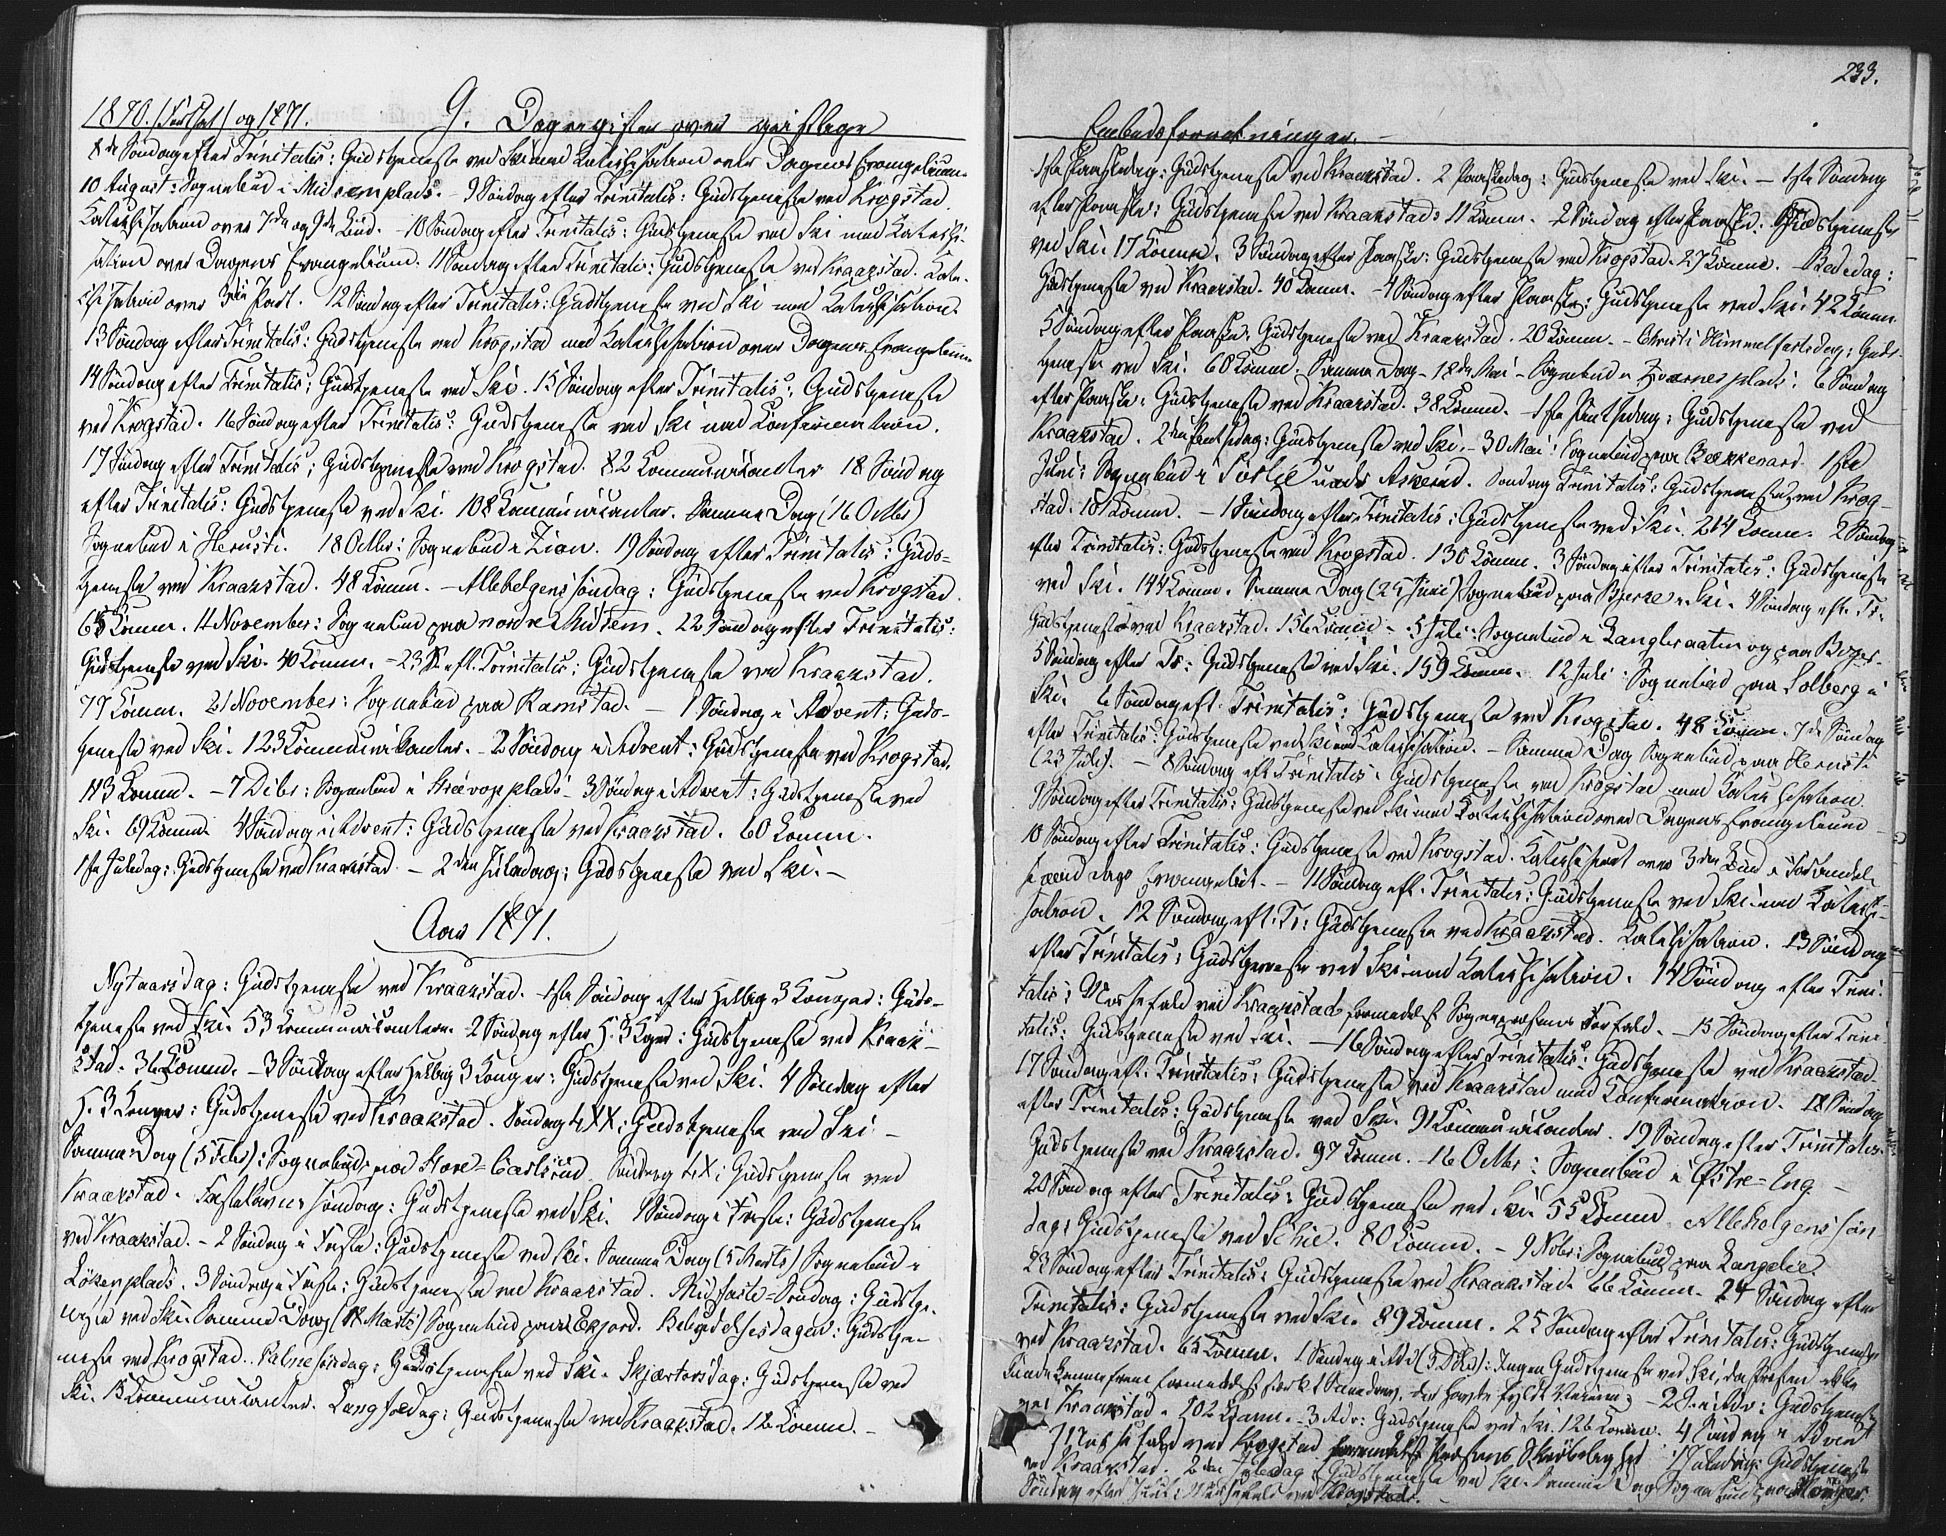 1870. (Fortsat) og 1871. 9. Dagregister over geistlige
8de Søndag efter Trinitatis: Gudstjeneste ved Ski med Katechisation over Dagens Evangelium.
10 August: Sognebud i Midsemplads. - 9 Søndag efter Trinitatis: Gudstjeneste ved Krogstad.
Katechisation over 7de og 9de Bud. - 10 Søndag efter Trinitatis: Gudstjeneste ved Ski med Katechi-
sation over Dagens Evangelium. 11 Søndag efter Trinitatis: Gudstjeneste ved Kraakstad. Kate-
chisation over 3die Part. 12 Søndag efter Trinitatis: Gudstjeneste ved Ski med Katechisation.
13 Søndag efter Trinitatis: Gudstjeneste ved Krogstad med Katechisation over Dagens Evangelium
14 Søndag efter Trinitatis: Gudstjeneste ved Ski. 15 Søndag efter Trinitatis: Gudstjeneste
ved Krogstad. 16 Søndag efter Trinitatis: Gudstjeneste ved Ski med Confirmation.
17 Søndag efter Trinitatis: Gudstjeneste ved Krogstad. 82 Communicanter 18 Søndag
efter Trinitatis: Gudstjeneste ved Ski. 108 Communicanter. Samme Dag (16 Octbr)
Sognebud i Herusti. 18 Octbr: Sognebud i Zion. 19 Søndag efter Trinitatis: Guds-
tjeneste ved Kraakstad. 48 Comm. - Allehelgens søndag: Gudstjeneste ved Krogstad.
65 Comm. 11 November: Sognebud paa nordre Midsem. 22 Søndag efter Trinitatis:
Gudstjeneste ved Ski. 40 Comm. - 23 S. eft. Trinitatis: Gudstjeneste ved Kraakstad.
77 Comm. 21 November: Sognebud paa Ramstad. - 1 Søndag i Advent: Guds-
tjeneste ved Ski. 123 Communicanter. - 2 Søndag i Advent: Gudstjeneste ved Krogstad.
113 Comm. - 7 Decbr: Sognebud i plads. 3 Søndag i Advent: Gudstjeneste ved
Ski. 69 Comm. 4 Søndag i Advent: Gudstjeneste ved Kraakstad. 60 Comm.
1ste Juledag: Gudstjeneste ved Kraakstad - 2den Juledag: Gudstjeneste ved Ski. -
Aar 1871.
Nytaarsdag: Gudstjeneste ved Kraakstad. 1ste Søndag efter Hellig 3 Konger: Guds-
tjeneste ved Ski. 53 Communicanter. 2 Søndag efter H. 3 Kgr: Gudstjeneste ved Kraak-
stad. 36 Comm. - 3 Søndag efter Hellig 3 Konger: Gudstjeneste ved Ski. 4 Søndag efter
H. 3 Konger: Gudstjeneste ved Kraakstad. Søndag LXX: Gudstjeneste ved Ski -
Samme Dag (5 Febr): Sognebud paa Store-Carlsrud. Søndag LX: Gudstjeneste ved
Kraakstad. Fastelavns søndag: Gudstjeneste ved Ski. 1 Søndag i Faste: Gudstjeneste
ved Kraakstad. - 2 Søndag i Faste: Gudstjeneste ved Ski. Samme Dag (5 Marts) Sognebud i
Løkenplads. 3 Søndag i Faste: Gudstjeneste ved Kraakstad. Midfaste-Søndag: Gudstje-
neste ved Ski. Samme Dag (Marts) Sognebud paa Ekjord. Bebudelsesdagen: Gudstje-
neste ved Krogstad. Palmesøndag: Gudstjeneste ved Ski. Skjærtorsdag: Gudstjeneste ved
Ski. 15 Communicanter. Langfredag: Gudstjeneste ved Kraakstad. 12 Comm. -
233.
Embedsforretninger. -
1ste Paaskedag: Gudstjeneste ved Kraakstad. 2 Paaskedag: Gudstjeneste ved Ski. - 1ste Søndag
efter Paaske: Gudstjeneste ved Kraakstad: 11 Comm. 2 Søndag efter Paaske: Gudstjeneste
ved Ski. 17 Comm. 3 Søndag efter Paaske: Gudstjeneste ved Krogstad. 27 Comm. - Bededag:
Gudstjeneste ved Kraakstad. 40 Comm. - 4 Søndag efter Paaske: Gudstjeneste ved Ski. 42 Comm
5 Søndag efter Paaske: Gudstjeneste ved Kraakstad. 20 Comm. - Christi Himmelfartsdag: Guds-
tjeneste ved Ski. 60 Comm. Samme Dag - 18de Mai - Sognebud i Kværnes plads. 6 Søndag
efter Paaske: Gudstjeneste ved Kraakstad. 38 Comm. - 1ste Pintsedag: Gudstjeneste ved
Kraakstad. 2den Pintsedag: Gudstjeneste ved Ski. - 30 Mai: Sognebud paa Bækkevard 1ste
Juni: Sognebud i under Askerud. Søndag Trinitatis: Gudstjeneste ved Krog-
stad. 101 Comm. - 1 Søndag efter Trinitatis: Gudstjeneste ved Ski. 214 Comm. 2 Søndag
efter Trinitatis: Gudstjeneste ved Krogstad. 130 Comm. 3 Søndag efter Trinitatis: Gudstjeneste
ved Ski. 144 Comm. Samme Dag (25 Juni) Sognebud paa Bjerke i Ski. 4 Søndag eft. Tr.
Gudstjeneste ved Kraakstad. 156 Comm - 5 Juli: Sognebud i Langbraaten og paa
5 Søndag efter Tr: Gudstjeneste ved Ski. 159 Comm. 12 Juli: Sognebud paa Solberg i
Ski. 6 Søndag eft. Trinitatis: Gudstjeneste ved Krogstad. 48 Comm. 7de Søndag
efter Trinitatis: Gudstjeneste ved Ski med Catechisation. - Samme Dag Sognebud paa Herusti
(23 Juli). - 8 Søndag eft Trinitatis: Gudstjeneste ved Krogstad med Katechisation.
9 Søndag efter Trinitatis: Gudstjeneste ved Ski med Katechisation over Dagens Evangelium -
10 Søndag efter Trinitatis: Gudstjeneste ved Krogstad. Katechiseret over 3die Bud i Forbindelse
Dags Evangelie. - 11 Søndag eft. Trinitatis: Gudstjeneste ved Ski med Katechi-
sation. 12 Søndag eft. Tr: Gudstjeneste ved Kraakstad. Katechisation. 13 Søndag
efter Trinitatis: Gudstjeneste ved Ski med Katechisation. 14 Søndag efter Trini-
tatis: Messefald ved Kraakstad formedelst Sognepræstens Forfald. - 15 Søndag efter Trini
tatis: Gudstjeneste ved Ski. - 16 Søndag efter Trinitatis: Gudstjeneste ved Kraakstad
17 Søndag eft. Trinitatis: Gudstjeneste ved Kraakstad med Confirmation. 18 Søndag
efter Trinitatis: Gudstjeneste ved Ski. 91 Communicanter. 19 Søndag efter Trinitatis.
Gudstjeneste ved Kraakstad. 97 Comm. - 16 Octbr: Sognebud i Østre-Eng -
20 Søndag efter Trinitatis: Gudstjeneste ved Ski 55 Comm Allehelgens søn
dag: Gudstjeneste ved Ski. 80 Comm. - 9 Novbr: Sognebud paa Langelie.
23 Søndag efter Trinitatis: Gudstjeneste ved Kraakstad. 66 Comm. 24 Søndag efter
Trinitatis: Gudstjeneste ved Ski. 89 Comm. 25 Søndag efter Trinitatis: Gudstjeneste
ved Kraakstad. 65 Comm. 1 Søndag i Adv (3 Decbr): Ingen Gudstjeneste ved Ski, da Præsten ikke
kunde komme frem formedelst stærkt Snedrev, der havde fyldt Veiene. - 2 S. i Adv: Gudstjeneste
ved Kraakstad. 102 Comm. - 3 Adv: Gudstjeneste ved Ski. 126 Comm. 4 Søndag i Advent
Messefald ved Krogstad formedelst Præstens Upasselighed 1 Juledag: Gudstjeneste
ved Kraakstad. 2den Juledag Gudstjeneste ved Ski. Samme Dag Sognebud paa
Søndag efter Juul: Messefald ved Krogstad.